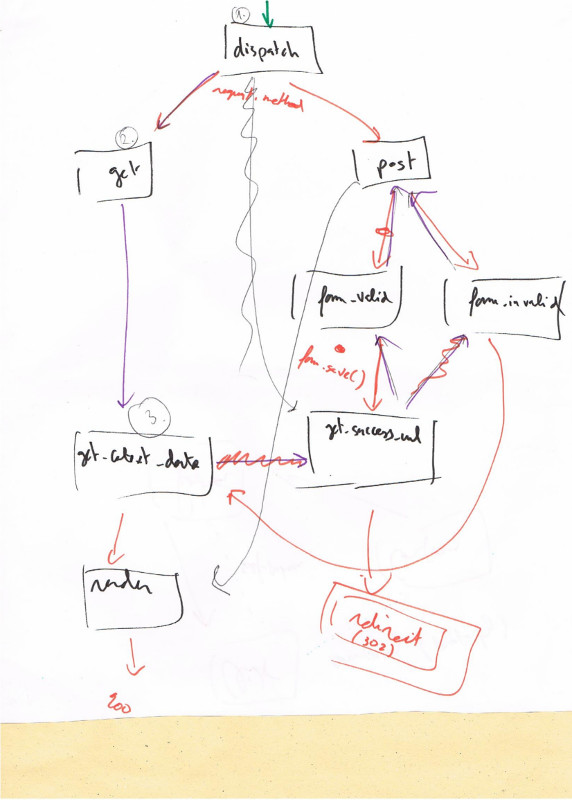 1.
dispatch
request.method
2.
get
post
form_valid
form_invalid
form.save()
3.
get_success_url
get_cotext_data
render
redirect
(302)
200